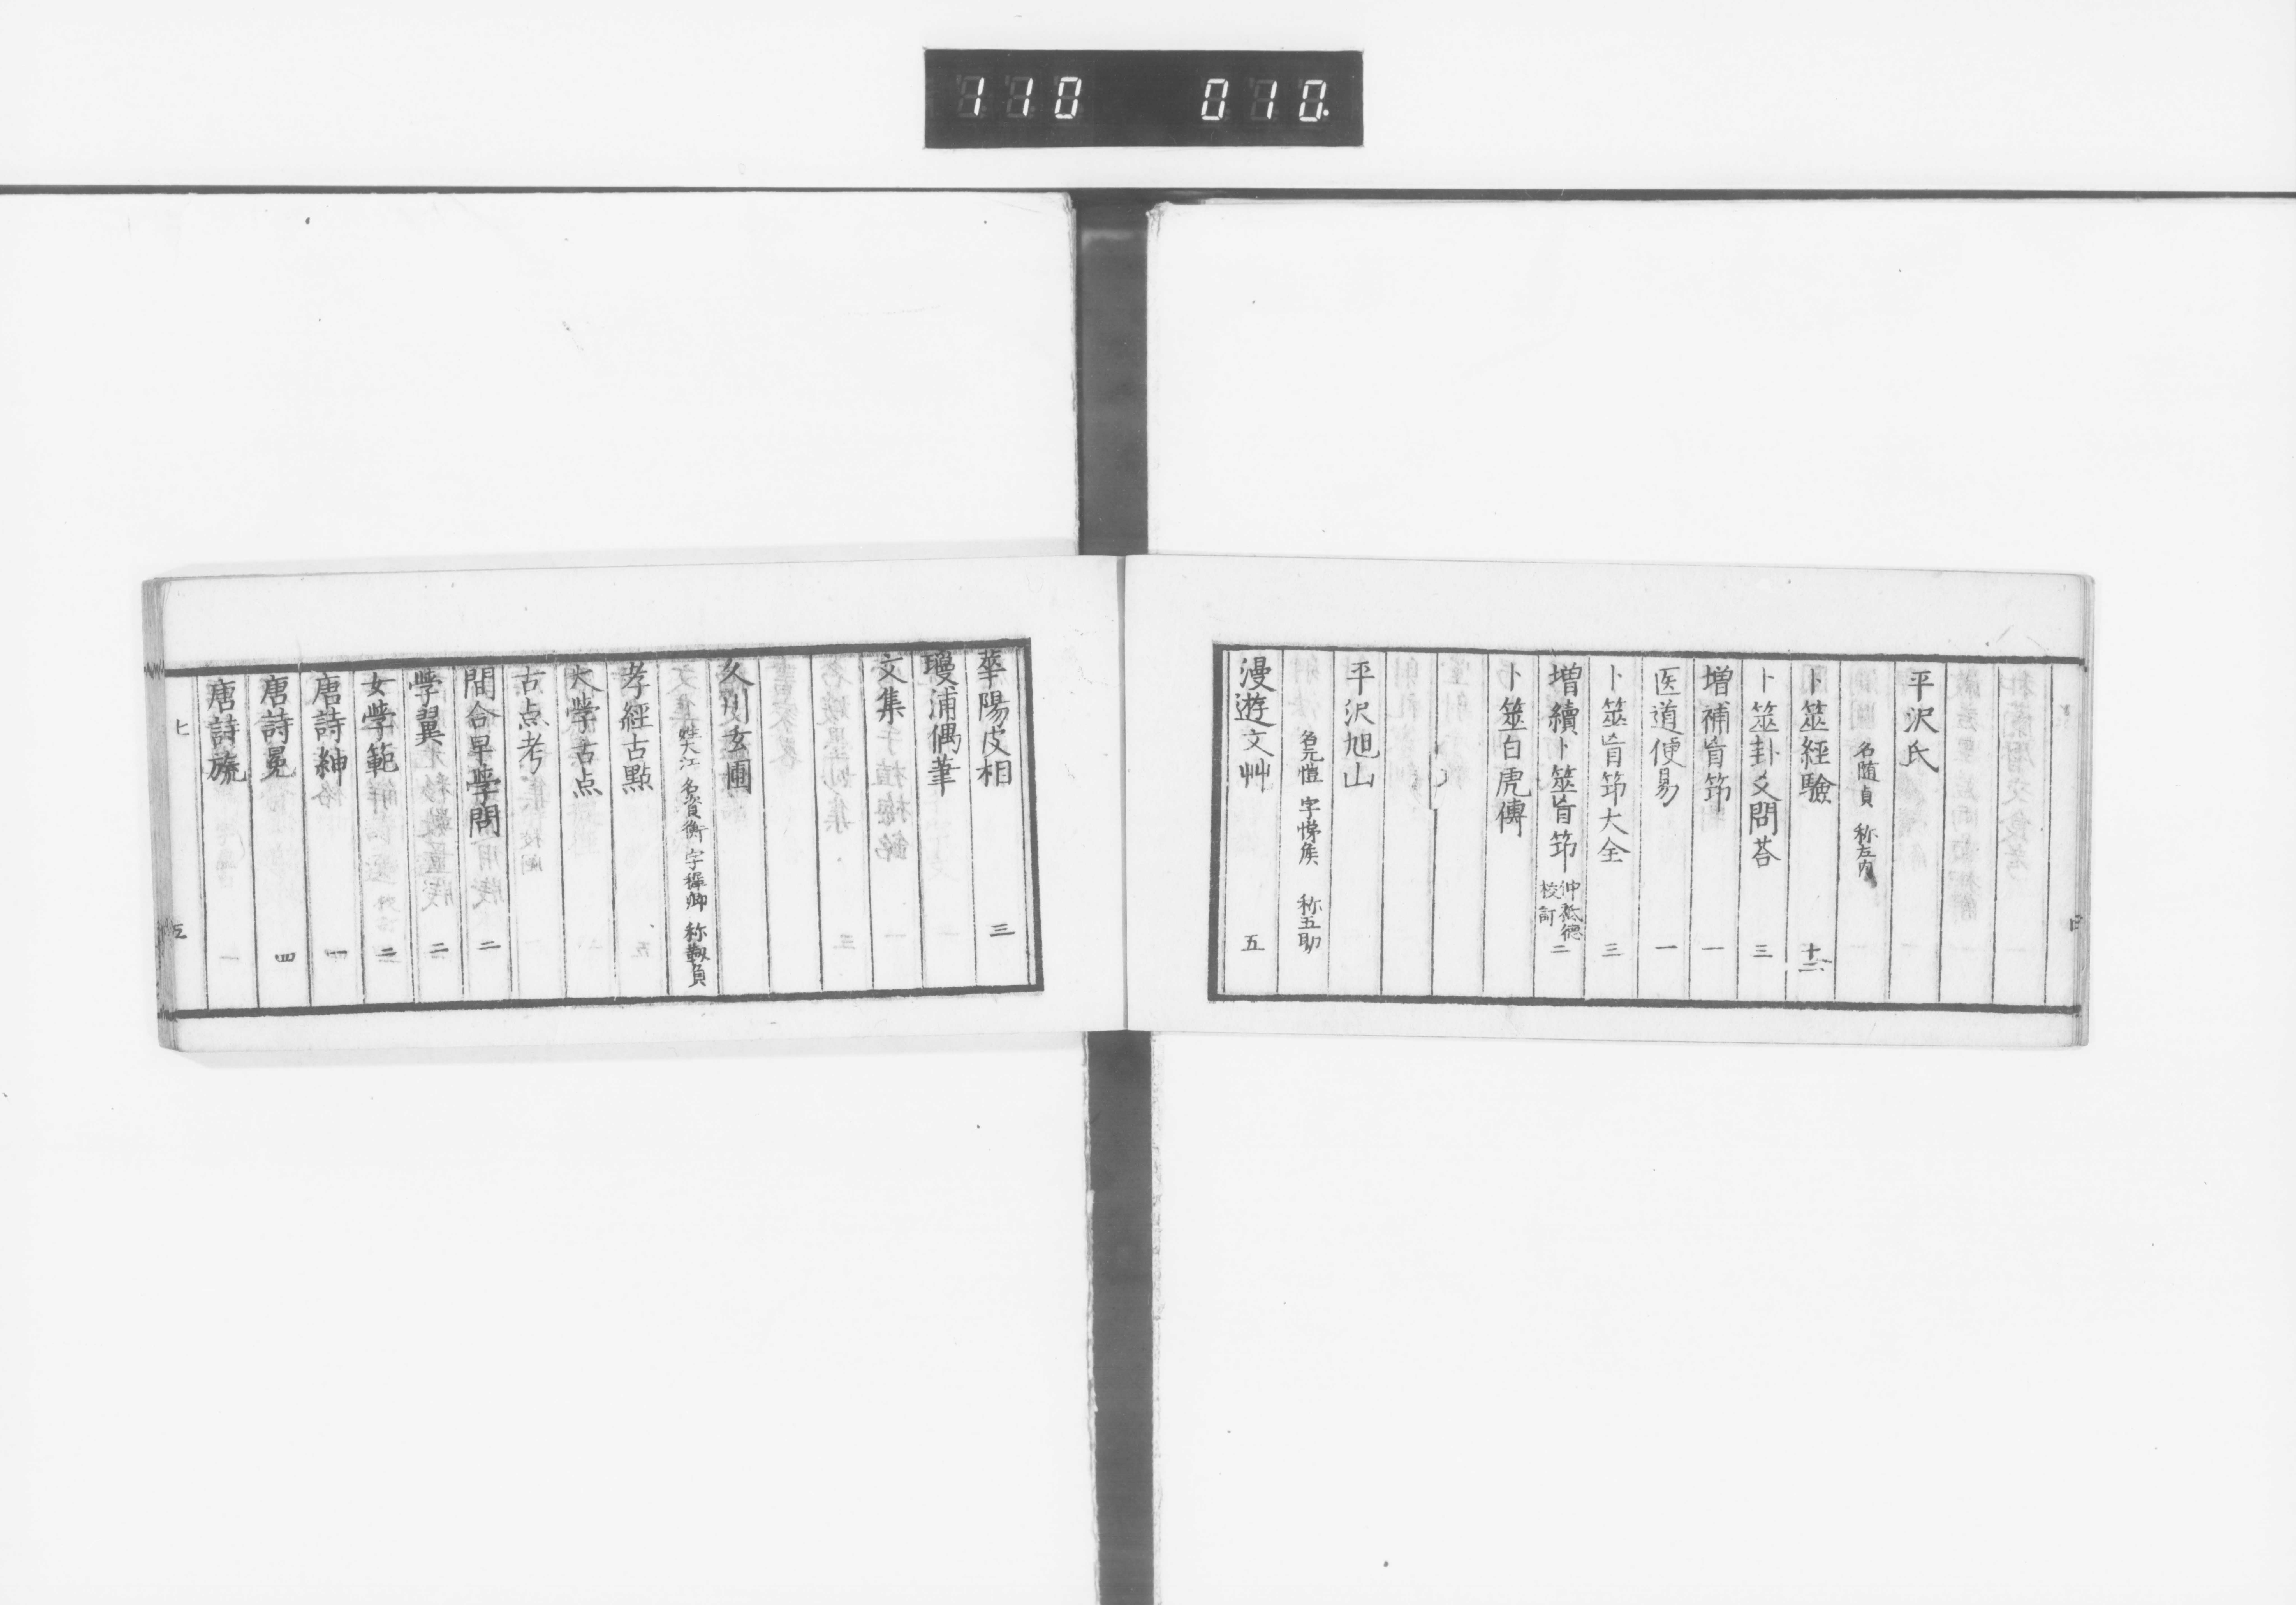 110 010.
平沢氏
名随貞 称左内
卜筮経驗 十二
卜筮卦爻問荅 三
増補盲筇 一
医道便易 一
卜筮盲筇大全 三
増續卜筮盲筇 仲祗德校訂 二
卜筮白虎傳
平沢旭山
名元愷 字悌侯 称五助
漫遊文艸 五
華陽皮相 三
瓊浦偶筆
文集
久川玄圃
姓大江 名資衡 字穉卿 称靱負
孝經古點
大學古点
古点考
間合早學問 二
學翼 二
女學範 二
唐詩紳 一
唐詩冕 四
唐詩旒
七
五